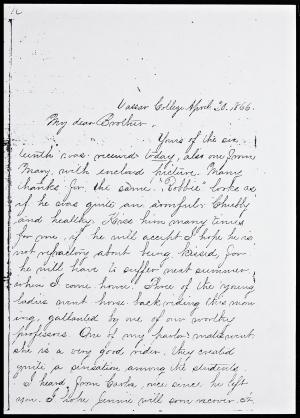 Vassar College April 20. 1866.
My dear Brother,
Yours of the six
teenth was received today, also one from
Mary, with inclosed picture. Many
thanks for the same. "Robbie" looks as
if he was quite an armful. Chubby
and healthy. Kiss him many times
for me, if he will accept I hope he is
not refractory about being kissed, for
he will have to suffer next summer
when I come home. Three of the young
ladies went horse back riding this morn
ing, gallanted by one of our worthy
professors. One of my parlor mates went
she is a very good rider. They created
quite a sensation among the students.
I heard from Carlo, since he left
you. I hope Jennie will soon recover